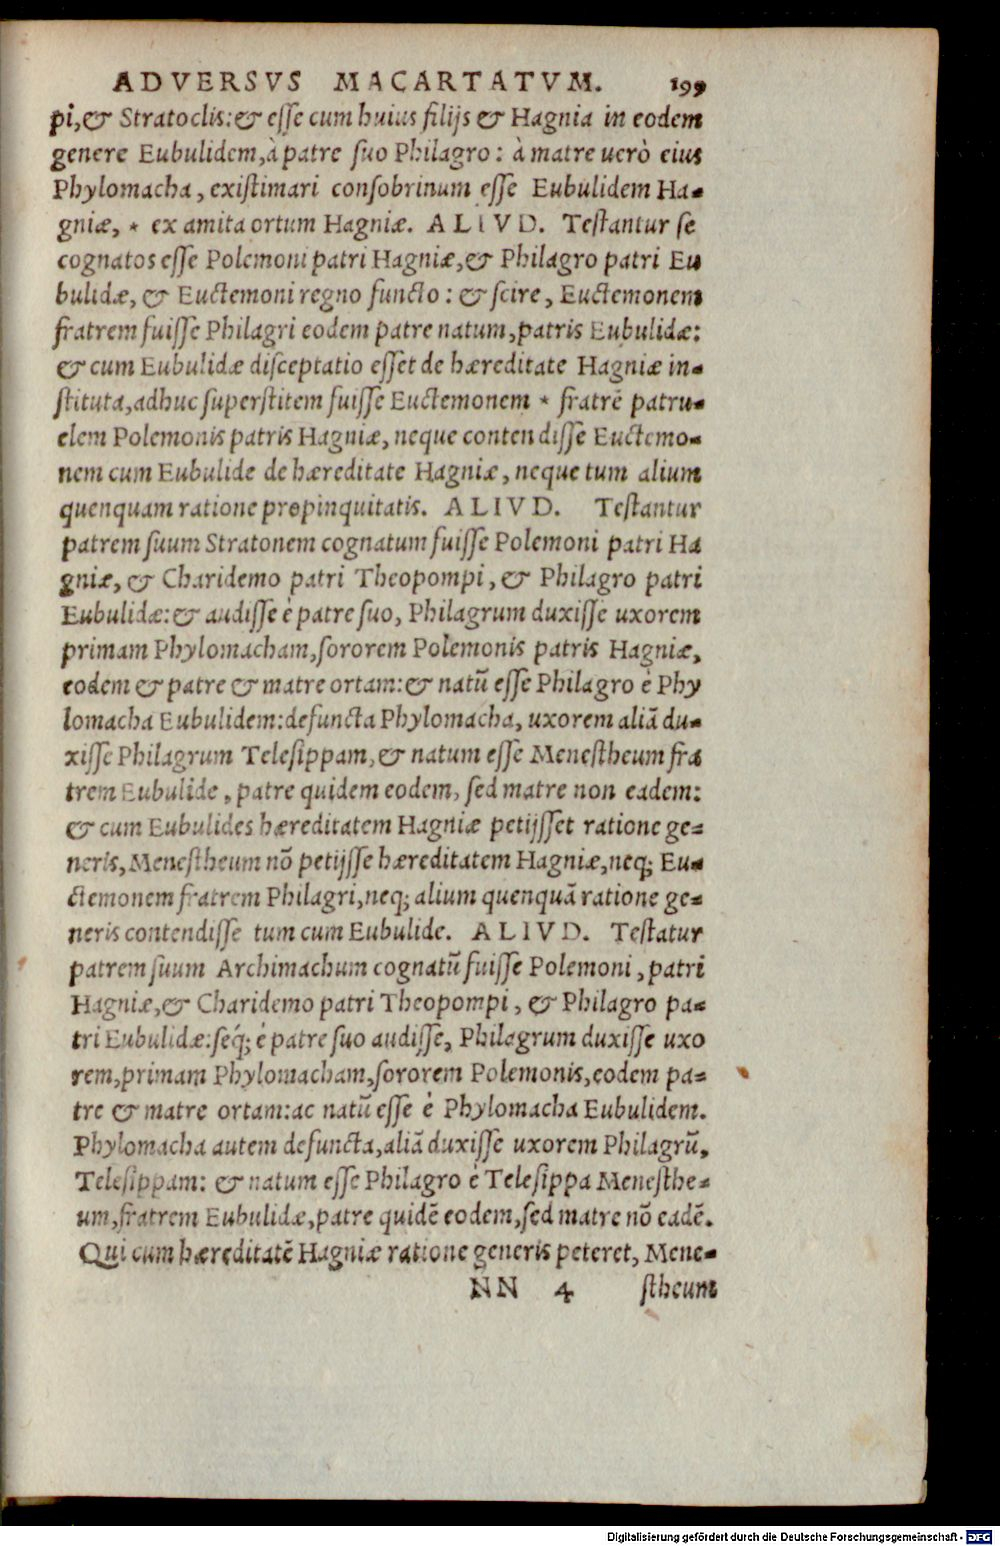 ADVERSVS MACARTATVM. 199
pi,& Stratoclis:& esse cum huius filijs & Hagnia in eodem
genere Eubulidem,à patre suo Philagro: à matre uerò eius
Phylomacha, existimari consobrinum esse Eubulidem Ha-
gniæ, * ex amita ortum Hagniæ. ALIVD. Testantur se
cognatos esse Polemoni patri Hagniæ,& Philagro patri Eu
bulidæ, & Euctemoni regno functo: & scire, Euctemonem
fratrem fuisse Philagri eodem patre natum,patris Eubulidæ:
& cum Eubulidæ disceptatio esset de hæreditate Hagniæ in-
stituta,adhuc superstitem fuisse Euctemonem * fratrē patru-
elem Polemonis patris Hagniæ, neque contendisse Euctemo-
nem cum Eubulide de hæreditate Hagniæ, neque tum alium
quenquam ratione propinquitatis. ALIVD. Testantur
patrem suum Stratonem cognatum fuisse Polemoni patri Ha
gniæ, & Charidemo patri Theopompi, & Philagro patri
Eubulidæ:& audisse è patre suo, Philagrum duxisse uxorem
primam Phylomacham,sororem Polemonis patris Hagniæ,
eodem & patre & matre ortam:& natū esse Philagro è Phy
lomacha Eubulidem:defuncta Phylomacha, uxorem aliā du-
xisse Philagrum Telesippam,& natum esse Menestheum fra
trem Eubulide, patre quidem eodem, sed matre non eadem:
& cum Eubulides hæreditatem Hagniæ petijsset ratione ge-
neris,Menestheum nō petijsse hæreditatem Hagniæ,neq; Eu-
ctemonem fratrem Philagri,neq; alium quenquā ratione ge-
neris contendisse tum cum Eubulide. ALIVD. Testatur
patrem suum Archimachum cognatū fuisse Polemoni, patri
Hagniæ,& Charidemo patri Theopompi, & Philagro pa-
tri Eubulidæ:séq; è patre suo audisse, Philagrum duxisse uxo
rem,primam Phylomacham,sororem Polemonis,eodem pa-
tre & matre ortam:ac natū esse è Phylomacha Eubulidem.
Phylomacha autem defuncta,aliā duxisse uxorem Philagrū,
Telesippam: & natum esse Philagro è Telesippa Menesthe-
um,fratrem Eubulidæ,patre quidē eodem,sed matre nō eadē.
Qui cum hæreditatē Hagniæ ratione generis peteret, Mene-
NN 4 stheum
Digitalisierung gefördert durch die Deutsche Forschungsgemeinschaft - DFG